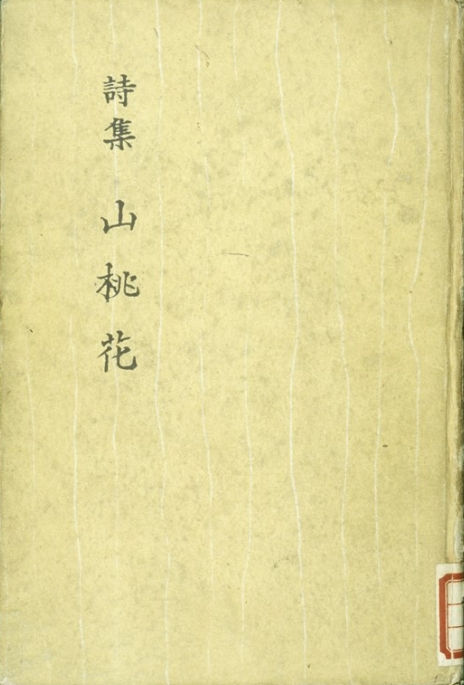 詩集 山桃花